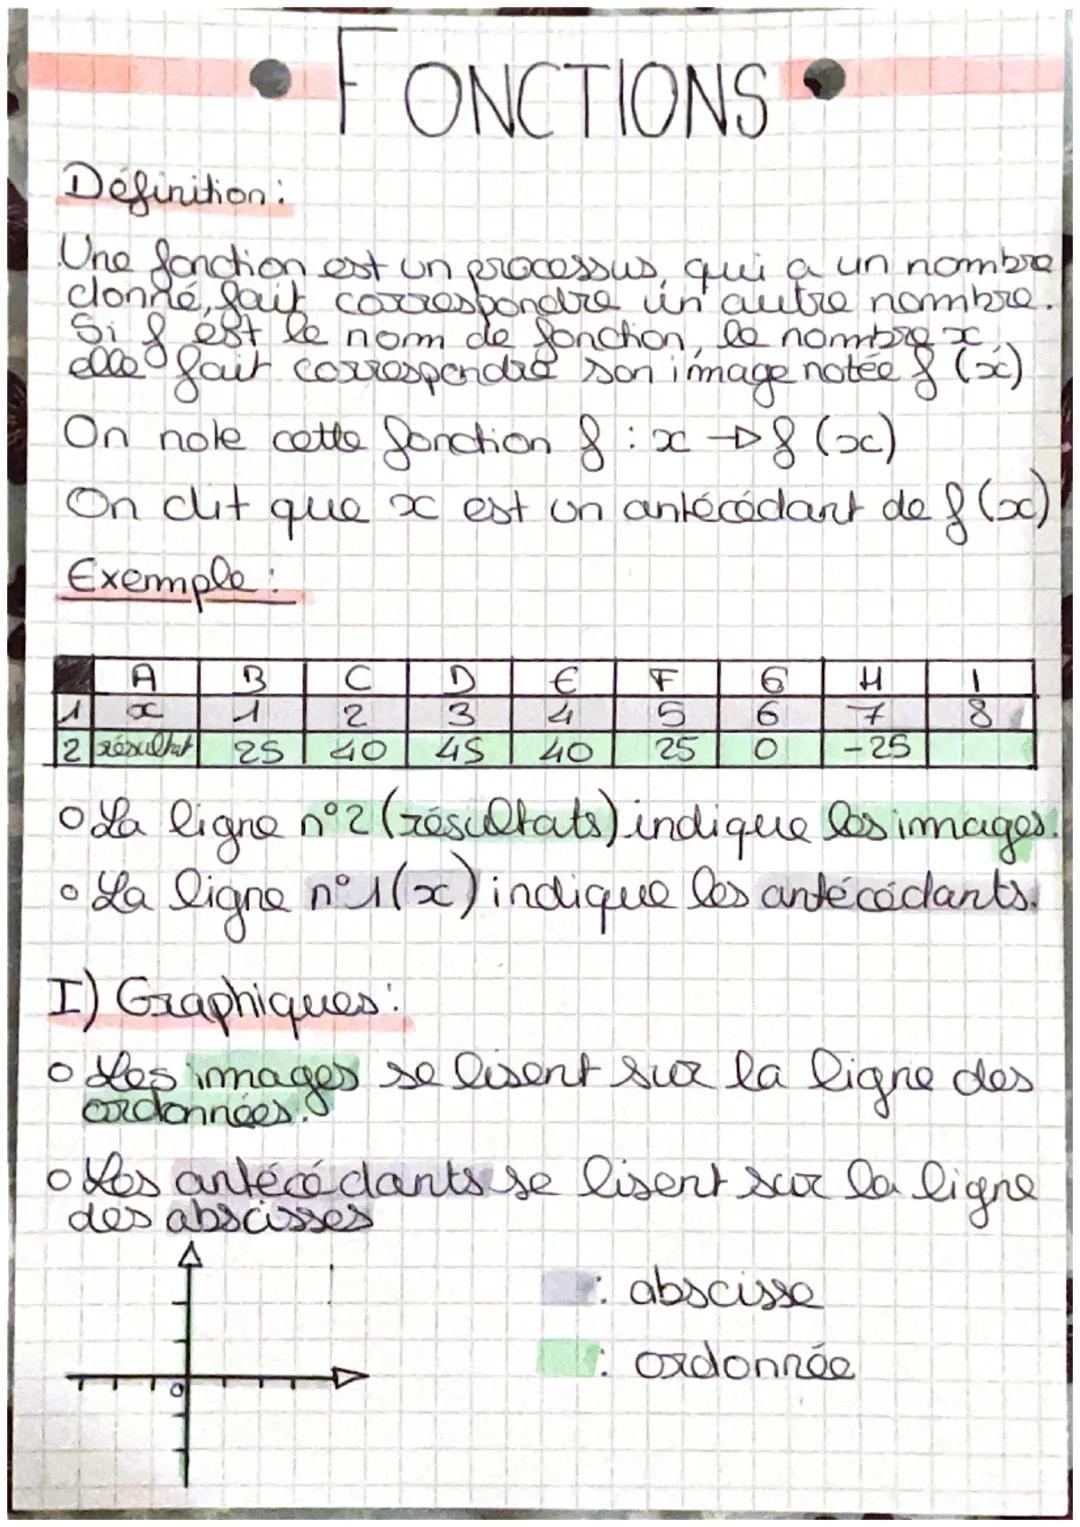 FONCTIONS
Définition:
Une fonction est un processus, qui a un nombre
donné, fait correspondre un autre nombre.
Si f est le nom de fonction, le nombre x,
elle fait correspondre son image notée f (x)
On note cette fonction f : x → f (x)
On dit que x est un antécédant de f (x)
Exemple:
A B C D E F G H I
1 x 1 2 3 4 5 6 7 8
2 résultat 25 40 45 40 25 0 -25
o La ligne n°2 (résultats) indique les images.
o La ligne n°1 (x) indique les antécédants.
I) Graphiques:
o Les images se lisent sur la ligne des
ordonnées.
o Les antécédants se lisent sur la ligne
des abscisses
0
: abscisse
: ordonnée